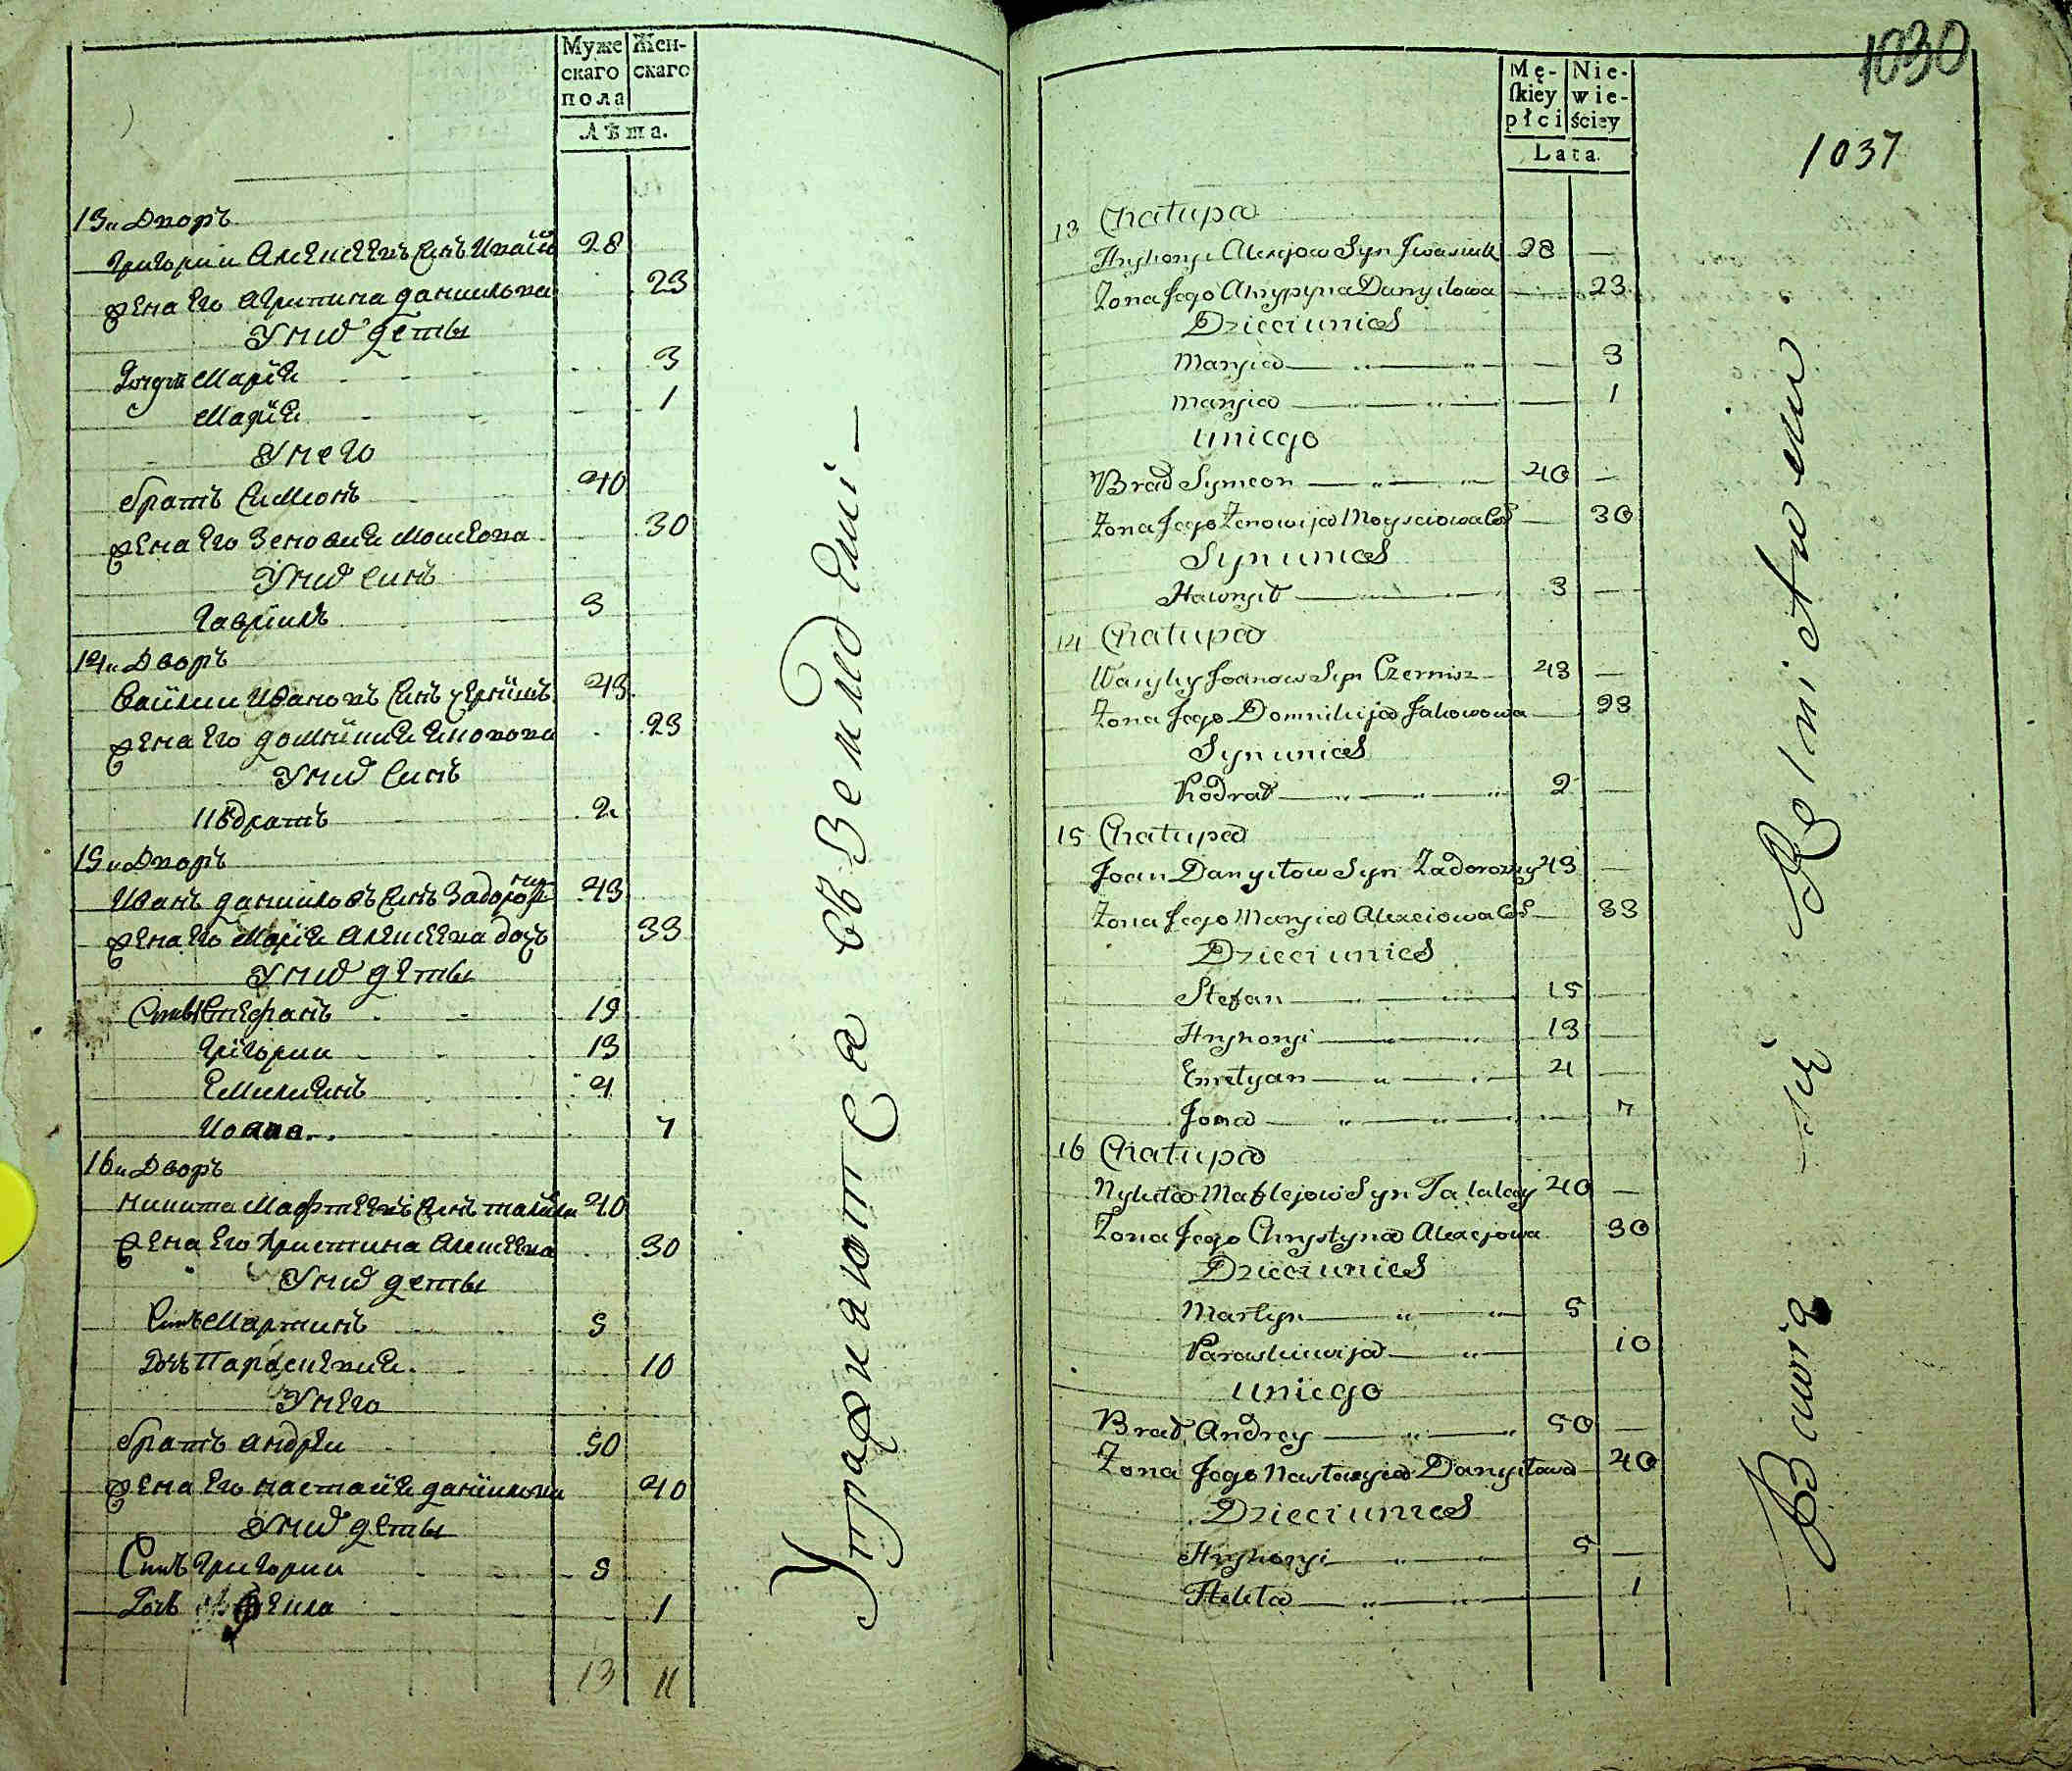 Муже
скаго
пола
Жен-
скаго
Лѣта.
13й Дворъ
Григорий Алексеевъ Синъ Иваси 28
жена Его Агрипина Данилова 23
У нид дети
Дочери Мария 3
Мария 1
У него
братъ Симионъ 40
жена Его Зеновия Моисеова 30
У нид Синъ
Гаврилъ 3
14й Дворъ
Василий Ивановъ Синъ Чернишъ 43
жена Его Домникия Яковова 23
У нид Синъ
Кодратъ 2
15й Дворъ
Иванъ Данииловъ Синъ Задорож 43
жена Его Мария Алексеева дочъ 33
У нид дети
Стефанъ 15
Григории 13
Емилиянъ 4
Иоана 7
16й Дворъ
Никита Мафтеевъ Синъ 40
жена Его Христина Алексеева 30
У нид дети
Синъ Мартинъ 5
Дочъ Параскевия 10
У него
братъ Андрей 50
жена Его Настасия Даниилова 40
У нид дети
Синъ Григории 5
Дочъ 1
13 11
Упражнаютса въ Земледелиі —
1030
1037
Mę-
ſkiey
płci
Nie-
wie-
ściey
Lata.
13 Chałupa
Hryhoryi Alexejow Syn Iwasiuk 28 —
Żona Jego Ahrypyna Danyiłowa — 23
Dzieci u nich
Maryia — 3
Maryia — 1
u niego
Brad Symeon 40 —
Żona Jego Zenowija Moysiejowa Cor — 30
Syn u nich
Hawryił 3 —
14 Chałupa
Wasyliy Joanow Syn Czernisz 43 —
Żona Jego Domnikija Jakowowa — 23
Syn u nich
Kodrat 2 —
15 Chałupa
Joan Danyiłow Syn Zadorozny 43 —
Żona Jego Maryia Alexiejowa Cor — 33
Dzieci u nich
Stefan 15 —
Hryhoryi 13 —
Emelyan 4 —
Joana — 7
16 Chałupa
Nykita Maftejow Syn Talalay 40 —
Żona Jego Chrystyna Alexejowa 30
Dzieci u nich
Martyn 5
Paraskiewija 10
u niego
Brat Andrey 50 —
Żona Jego Nastazyia Danyiłowa 40
Dzieci u nich
Hryhoryi 5 —
Thekla 1
Bawią się Rolnictwem